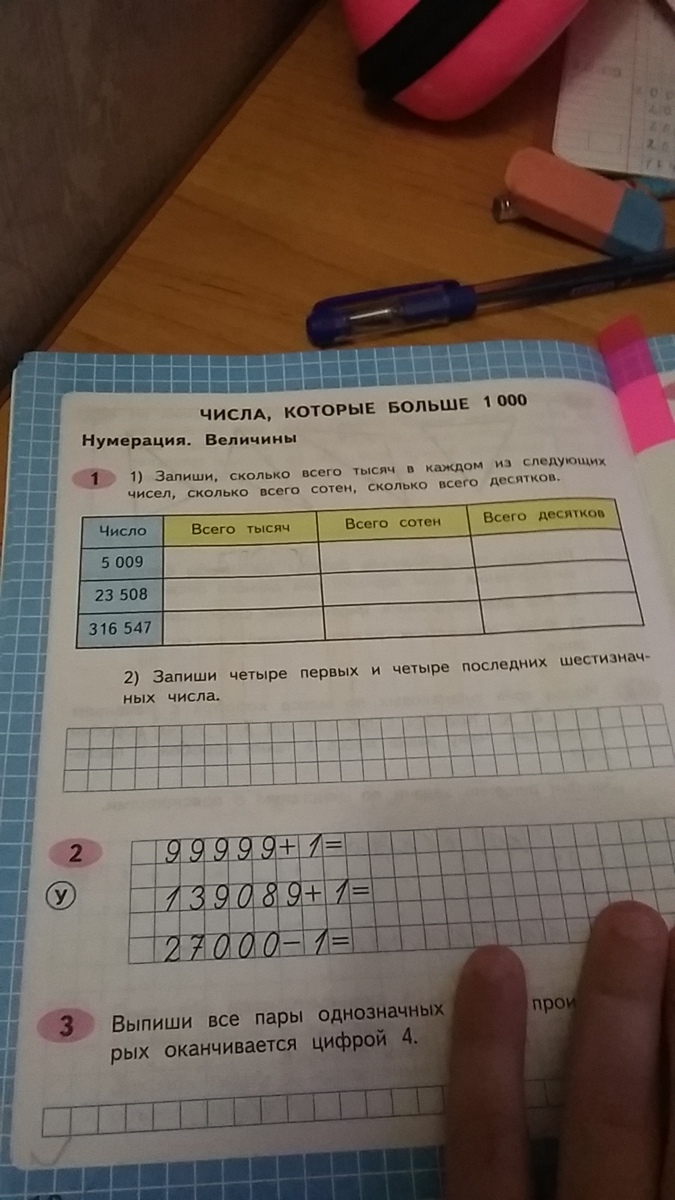 ЧИСЛА, КОТОРЫЕ БОЛЬШЕ 1 000
Нумерация. Величины
1 1) Запиши, сколько всего тысяч в каждом из следующих
чисел, сколько всего сотен, сколько всего десятков.
Число Всего тысяч Всего сотен Всего десятков
5 009
23 508
316 547
2) Запиши четыре первых и четыре последних шестизнач-
ных числа.
2 99999+1=
У 139089+1=
27000-1=
3 Выпиши все пары однозначных
рых оканчивается цифрой 4.